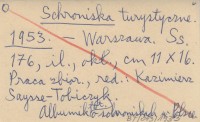 Schroniska turystyczne.
1953. - Warszawa. Ss.
176, il., okł., cm 11 X 16.
Praca zbior., red: Kazimierz
Saysse-Tobiczyk
Album